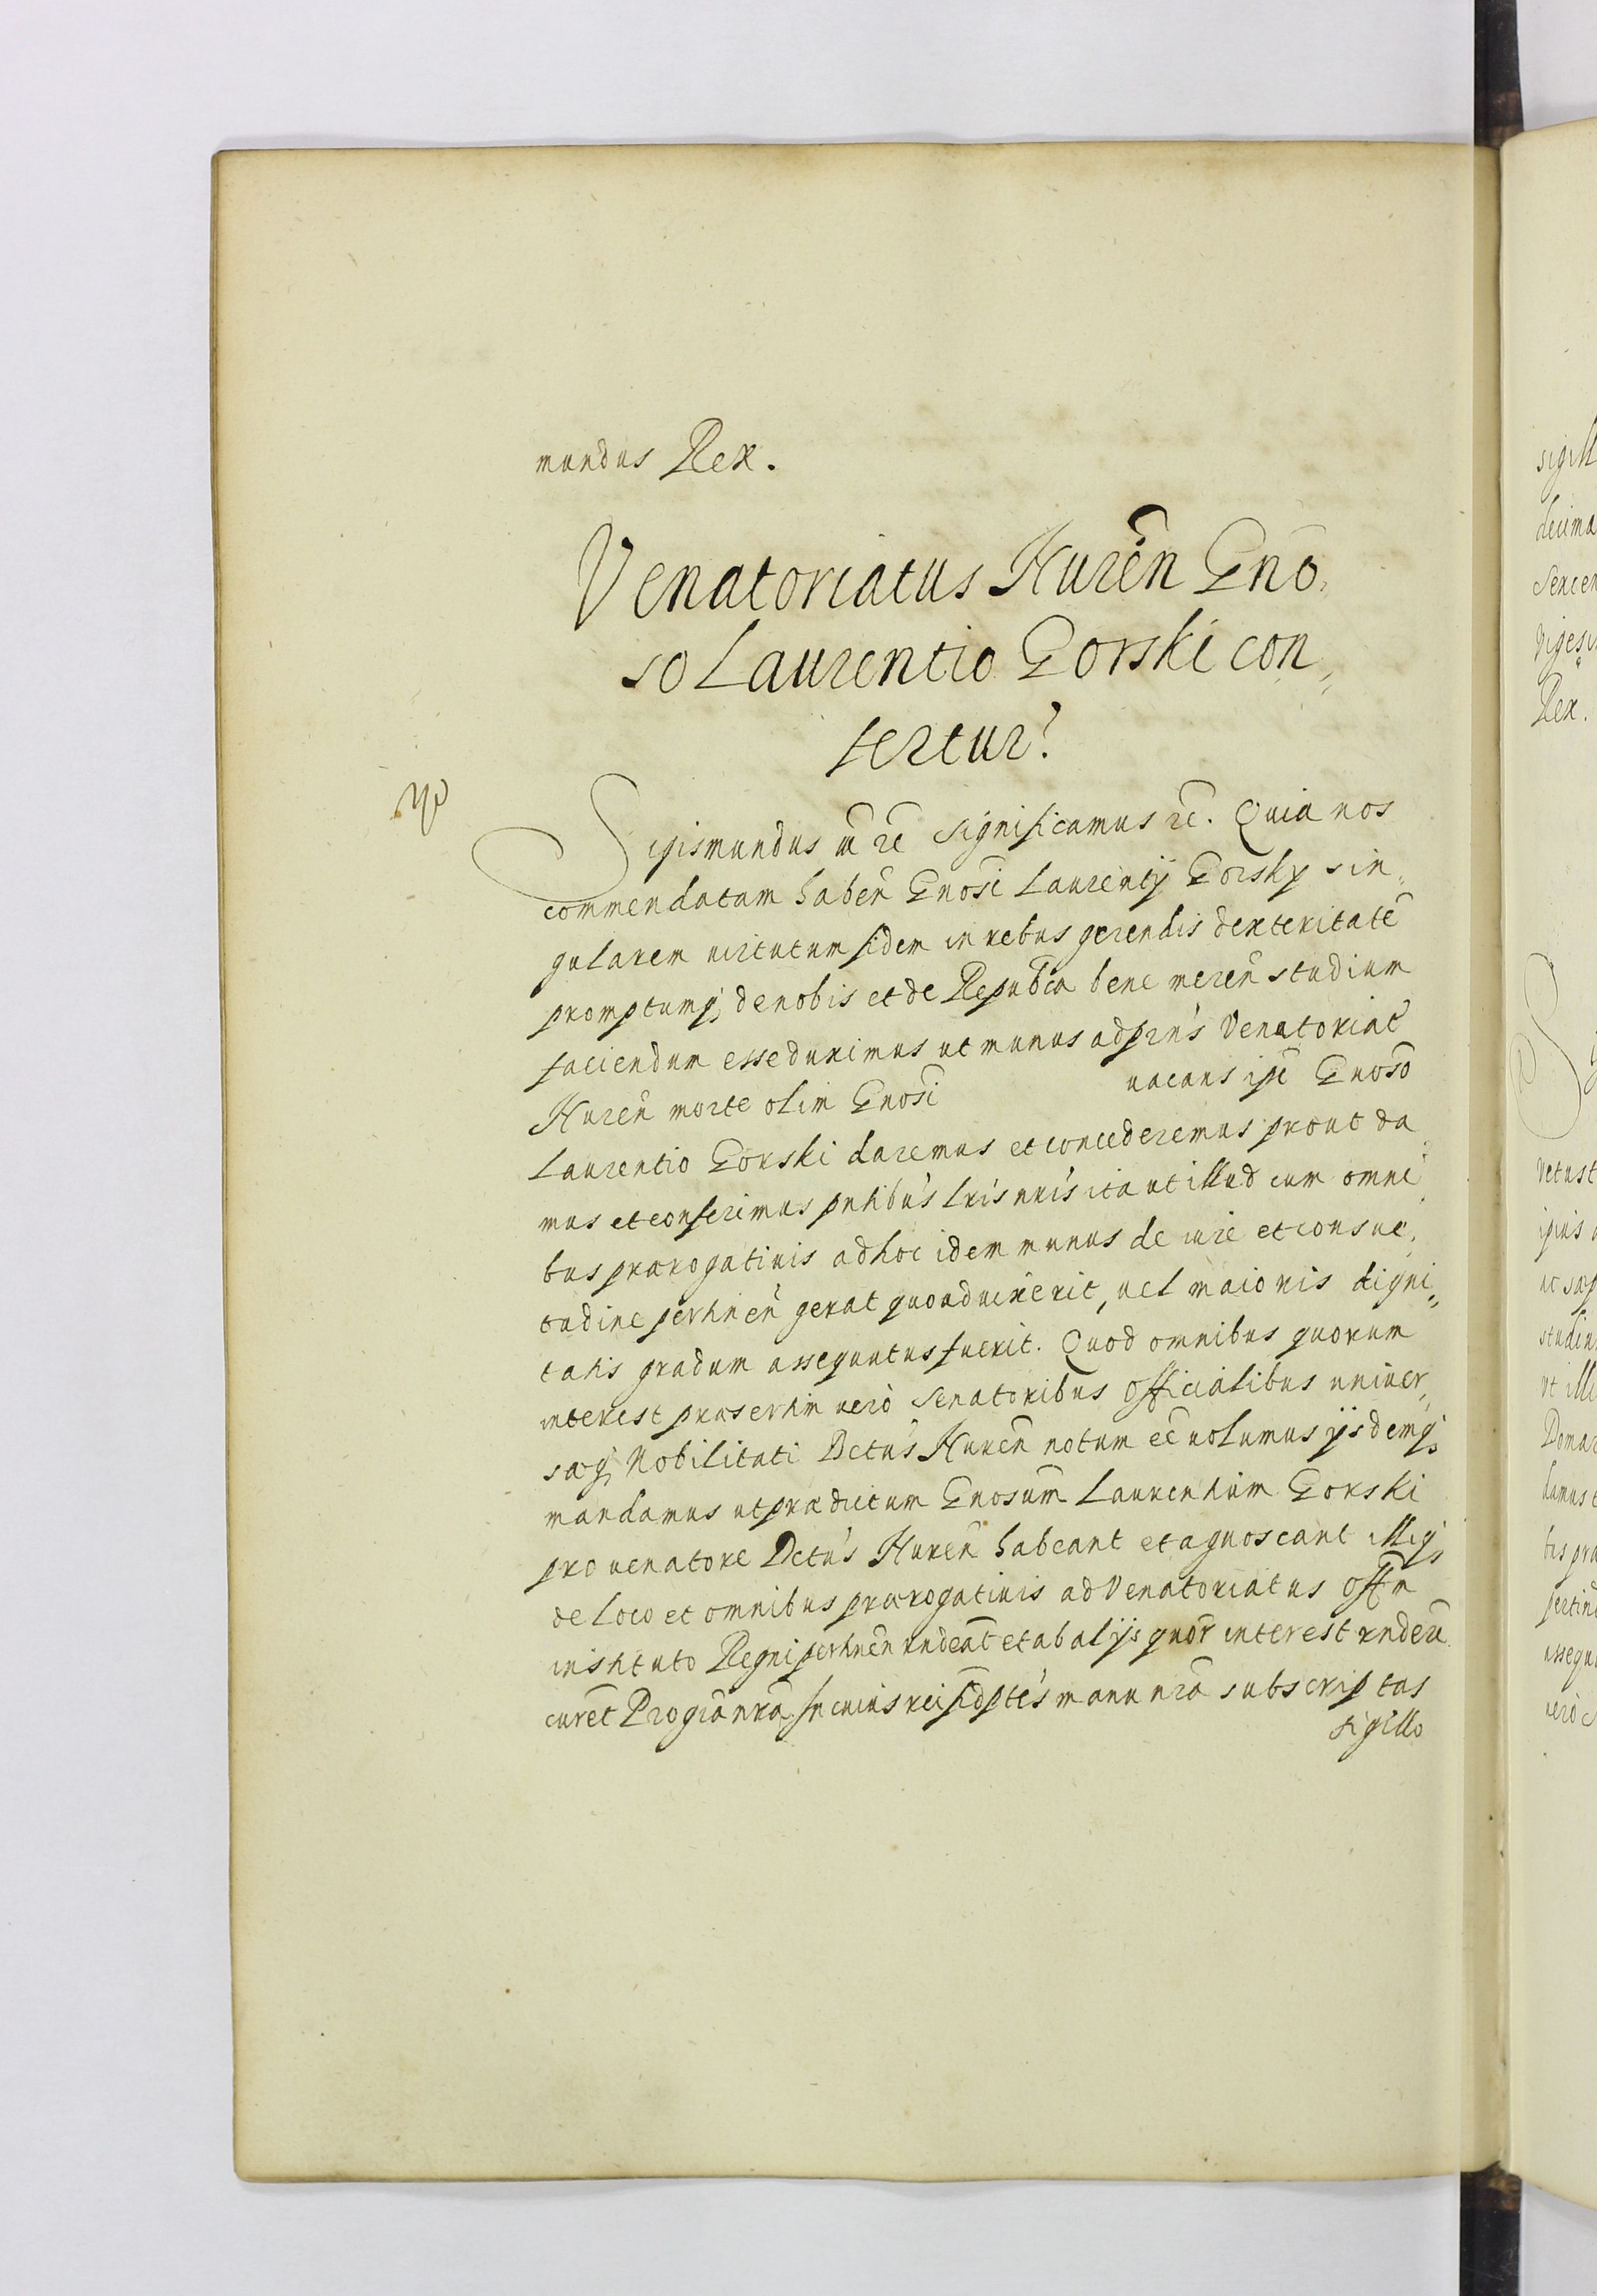 mundus Rex.
Venatoriatus Nureñ Gno,
so Laurentio Gorski con,,
fertur.
Sigismundus iii rc significamus rc. Quia nos
commendatam habeñ Gnosi Laurentij Gorsky sin,,
gularem uirtutum fidem in rebus gerendis dexteritatē
promptumq; de nobis et de Repubca bene mereñ studium
faciendum esse duximus ut munus ad prñs Venatoriat
Nureñ morte olim Gnosi uacans ipi Gnoso
Laurentio Gorski daremus et concederemus prout da
mus et conferimus pntibus lris nris ita ut illud cum omni
bus prærogatiuis ad hoc idem munus de iure et consue,
tudine pertineñ gerat quoad uixerit, uel maioris digni,,
tatis gradum assequutus fuerit. Quod omnibus quorum
interest præsertim uerò Senatoribus Officialibus uniuer,
sæq; Nobilitati Dctus Nureñ notum eē uolumus ijsdemq;
mandamus ut prædictum Gnosum Laurentium Gorski
pro uenatore Dctus Nureñ habeant et agnoscant illiq;
de loco et omnibus prærogatiuis ad Venatoriatus offm
instituto Regni pertineñ rndeāt et ab alijs quor interest rnderi
curet Pro gra nra In cuius rei fid ptes manu nra subscriptas
sigillo
sigill
decima
Rex.
vetust
studiu
vt ille
damus
bus præ
assequu